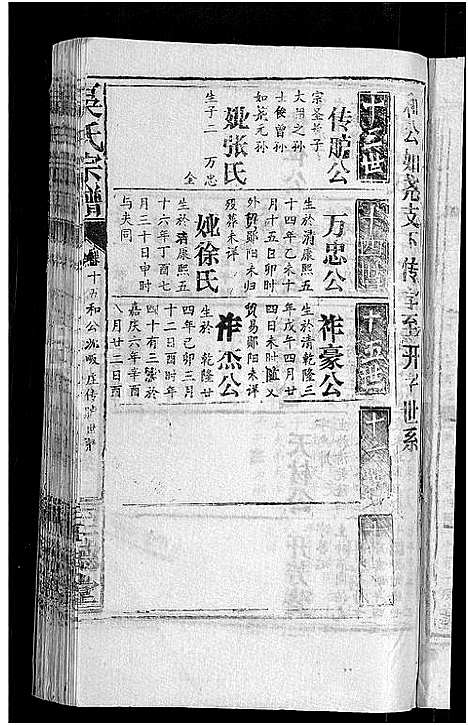 和公如尧支下传字至开字世系
十三世
传舵公
宗圣长子
大用之孙
士俊曾孙
如尧元孙
妣张氏
生子二 万忠
全
十四世
万忠公
生於清康熙五
十四年乙未十
月十五日卯时
外贸郧阳未归
殁葬未详
妣徐氏
生於清康熙五
十六年丁酉七
月三十日申时
与夫同
十五世
祚豪公
生於清乾隆三
年戊午四月廿
四日未时随父
贸易郧阳未详
祚杰公
生於乾隆廿
四年己卯三月
十二日酉时年
四十有三殁於
嘉庆六年辛酉
八月廿二日酉
吴氏宗谱
卷十五和公